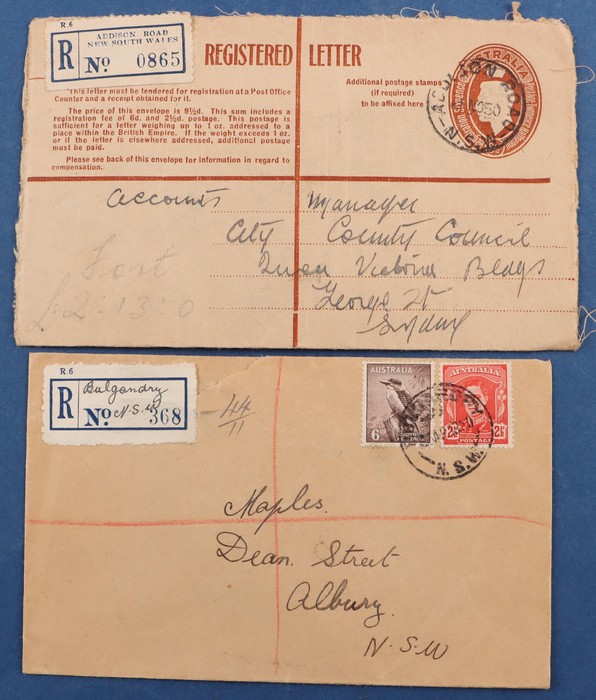 R.6
R
ADDISON ROAD
NEW SOUTH WALES
No 0865
REGISTERED LETTER
This letter must be tendered for registration at a Post Office
Counter and a receipt obtained for it.
The price of this envelope is 9½d. This sum includes a
registration fee of 6d. and 2½d. postage. This postage is
sufficient for a letter weighing up to 1 oz. addressed to a
place within the British Empire. If the weight exceeds 1 oz.
or if the letter is elsewhere addressed, additional postage
must be paid.
Please see back of this envelope for information in regard to
compensation.
Additional postage stamps
(if required)
to be affixed here
AUSTRALIA
ADDISON ROAD
N.S.W
Accounts Manager
City County Council
Queen Victoria Bldgs
George St
Sydney
£2-13-0
R.6
R
Bulgandry
N.S.W
No 368
44/11
AUSTRALIA
6D
AUSTRALIA
POSTAGE
N.S.W.
Maples.
Dean Street
Albury.
N.S.W